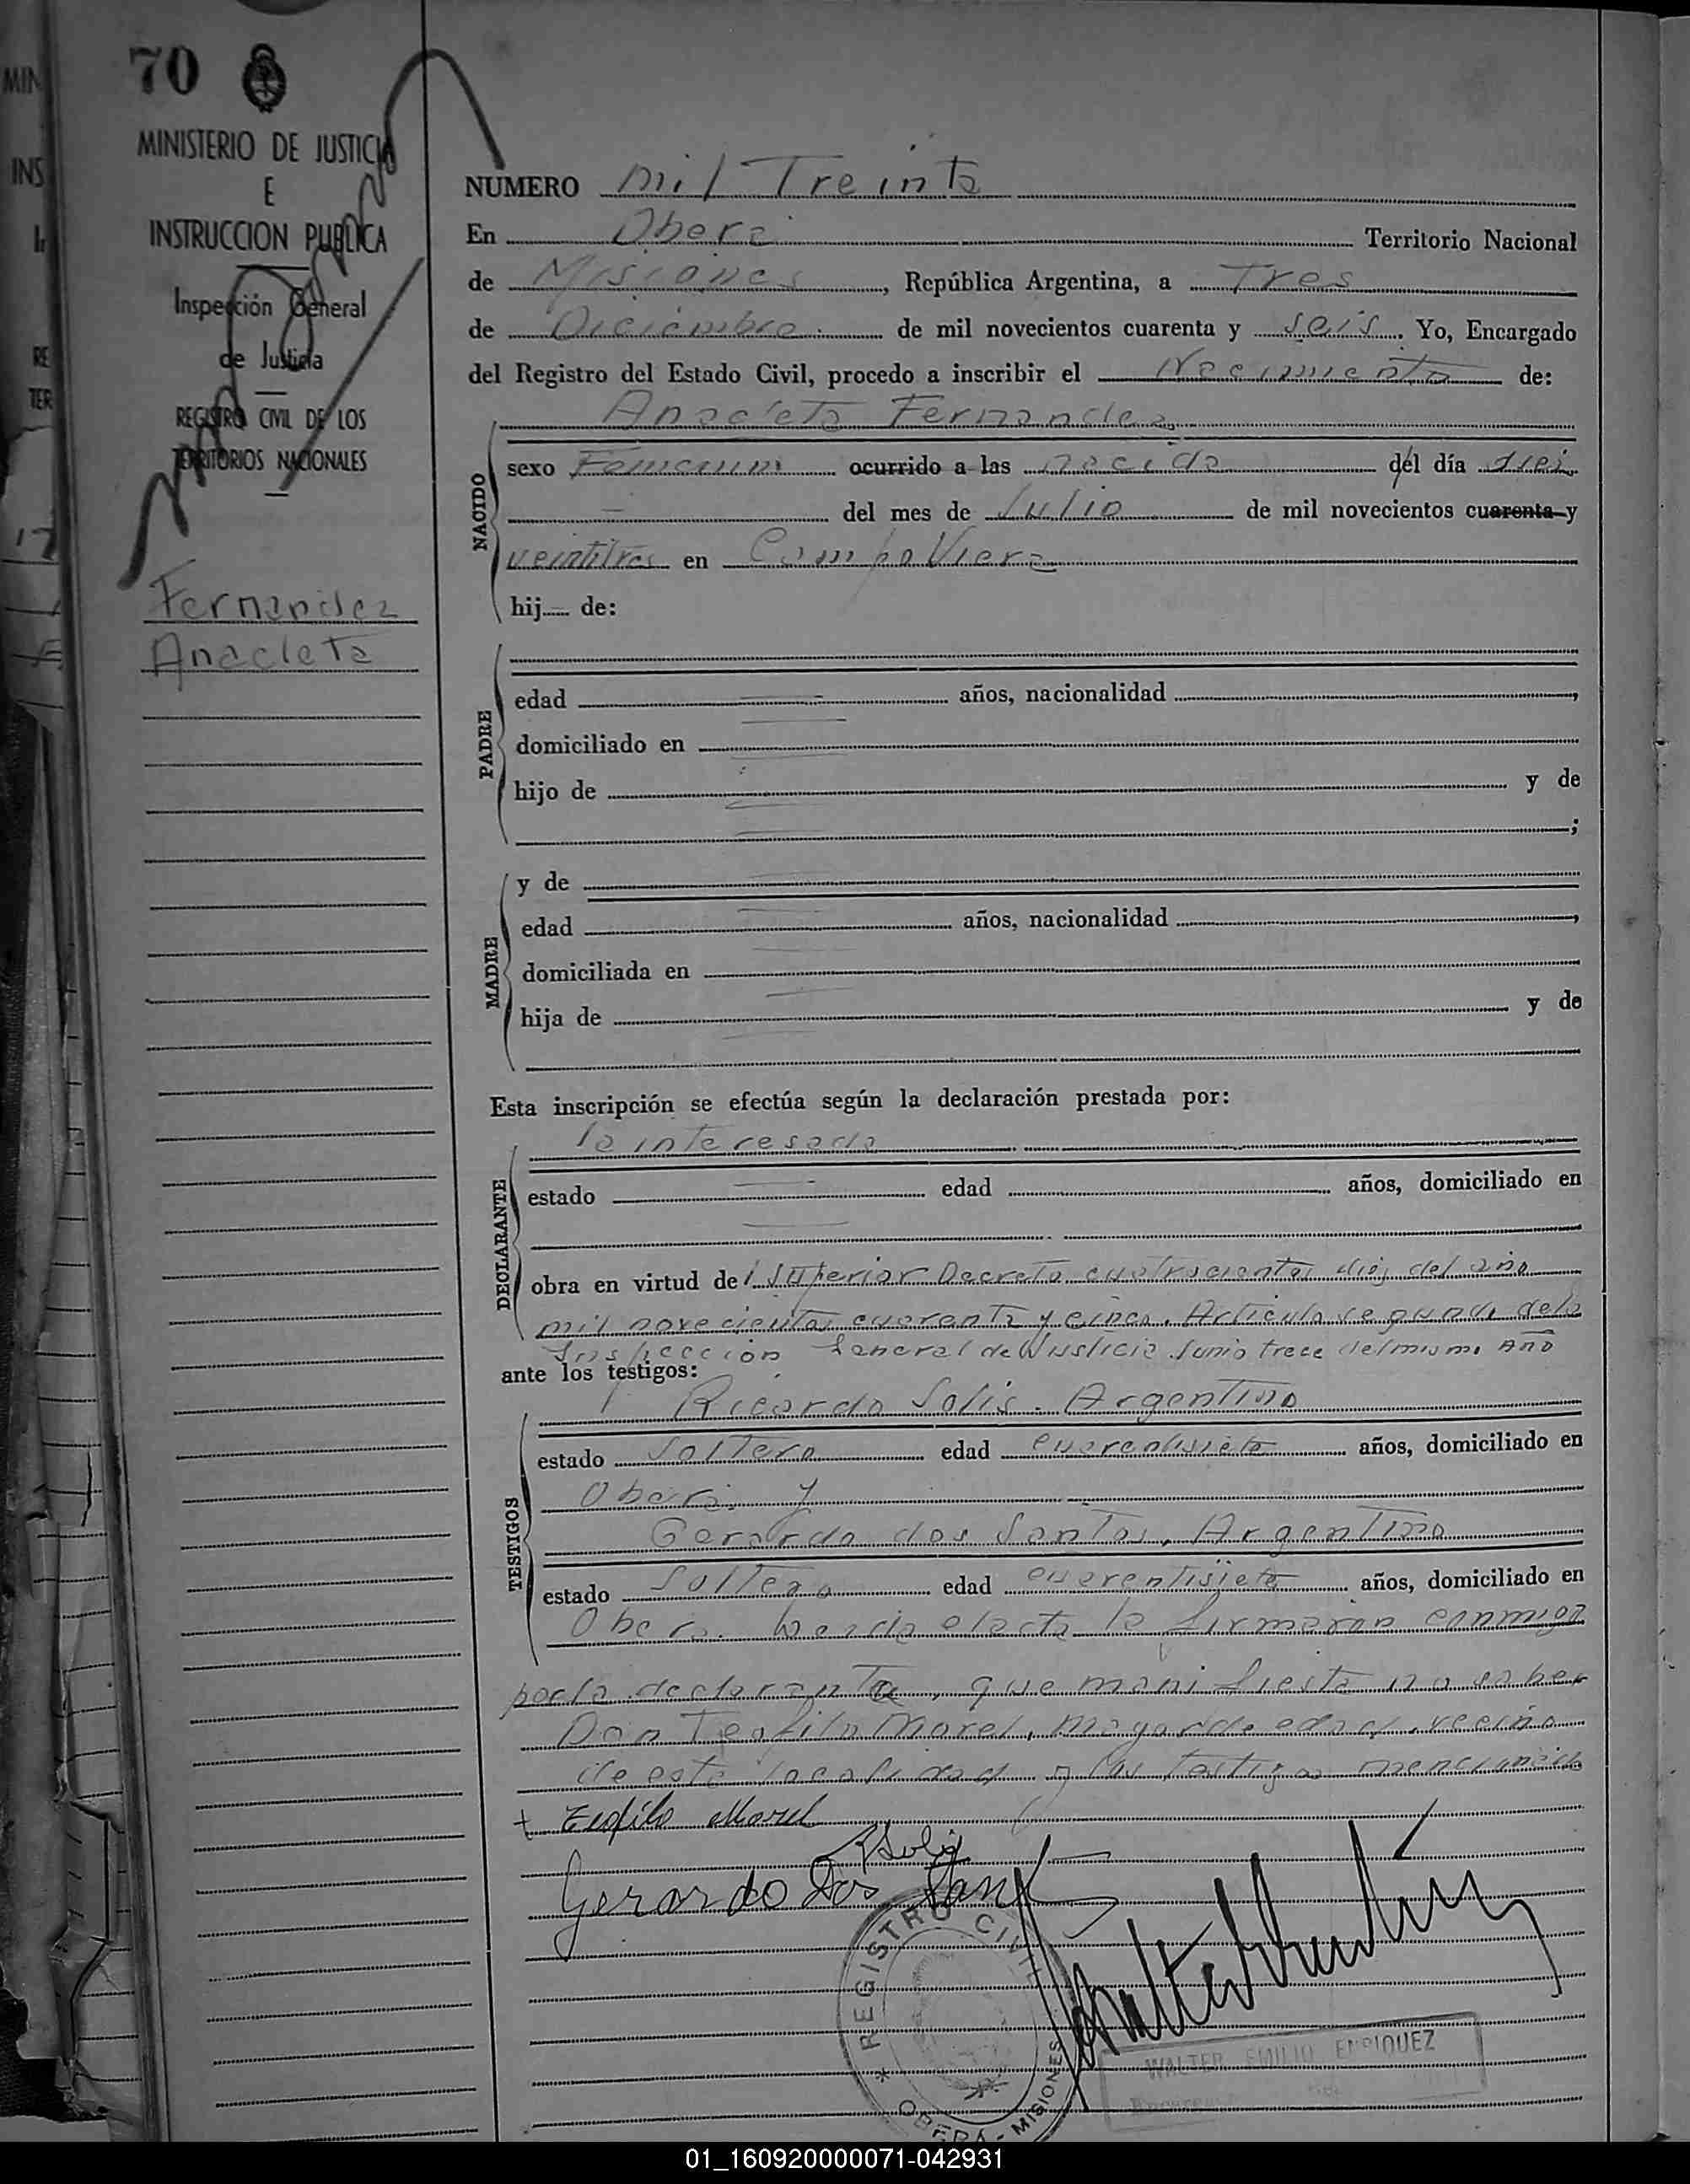 70
MINISTERIO DE JUSTICIA
E
INSTRUCCION PUBLICA
Inspección General
de Justicia
REGISTRO CIVIL DE LOS
TERRITORIOS NACIONALES
Fernandez
Anacleta
NUMERO mil Treinta
En Oberá Territorio Nacional
de Misiones, República Argentina, a Tres
de Diciembre de mil novecientos cuarenta y seis. Yo, Encargado
del Registro del Estado Civil, procedo a inscribir el Nacimiento de:
Anacleta Fernandez
NACIDO
sexo Femenino ocurrido a las nacida del día trei
del mes de Julio de mil novecientos cuarenta y
veintitres en Campo Viera
hij de:
PADRE
edad años, nacionalidad ,
domiciliado en
hijo de y de
;
MADRE
y de
edad años, nacionalidad ,
domiciliada en
hija de y de
Esta inscripción se efectúa según la declaración prestada por:
la interesada
DECLARANTE
estado edad años, domiciliado en
obra en virtud del Superior Decreto cuatrocientos diez del año
mil novecientos cuarenta y cinco. Articulo segundo de la
Inspeccion General de Justicia Junio trece del mismo Año
ante los testigos:
Ricardo Solis. Argentino
TESTIGOS
estado Soltero edad cuarentisiete años, domiciliado en
Oberá y
Gerardo dos Santos, Argentino
estado Soltero edad cuarentisiete años, domiciliado en
Oberá. Leida el acta la firmaron conmigo
por la declarante, que manifiesta no saber
Don Teofilo Morel, mayor de edad, vecino
de esta localidad y los testigos mencionados
+ Teofilo Morel
RSolis
Gerardo Dos Sant
REGISTRO CIVIL
* OBERA - MISIONES
WALTER EMILIO ENRIQUEZ
01_160920000071-042931